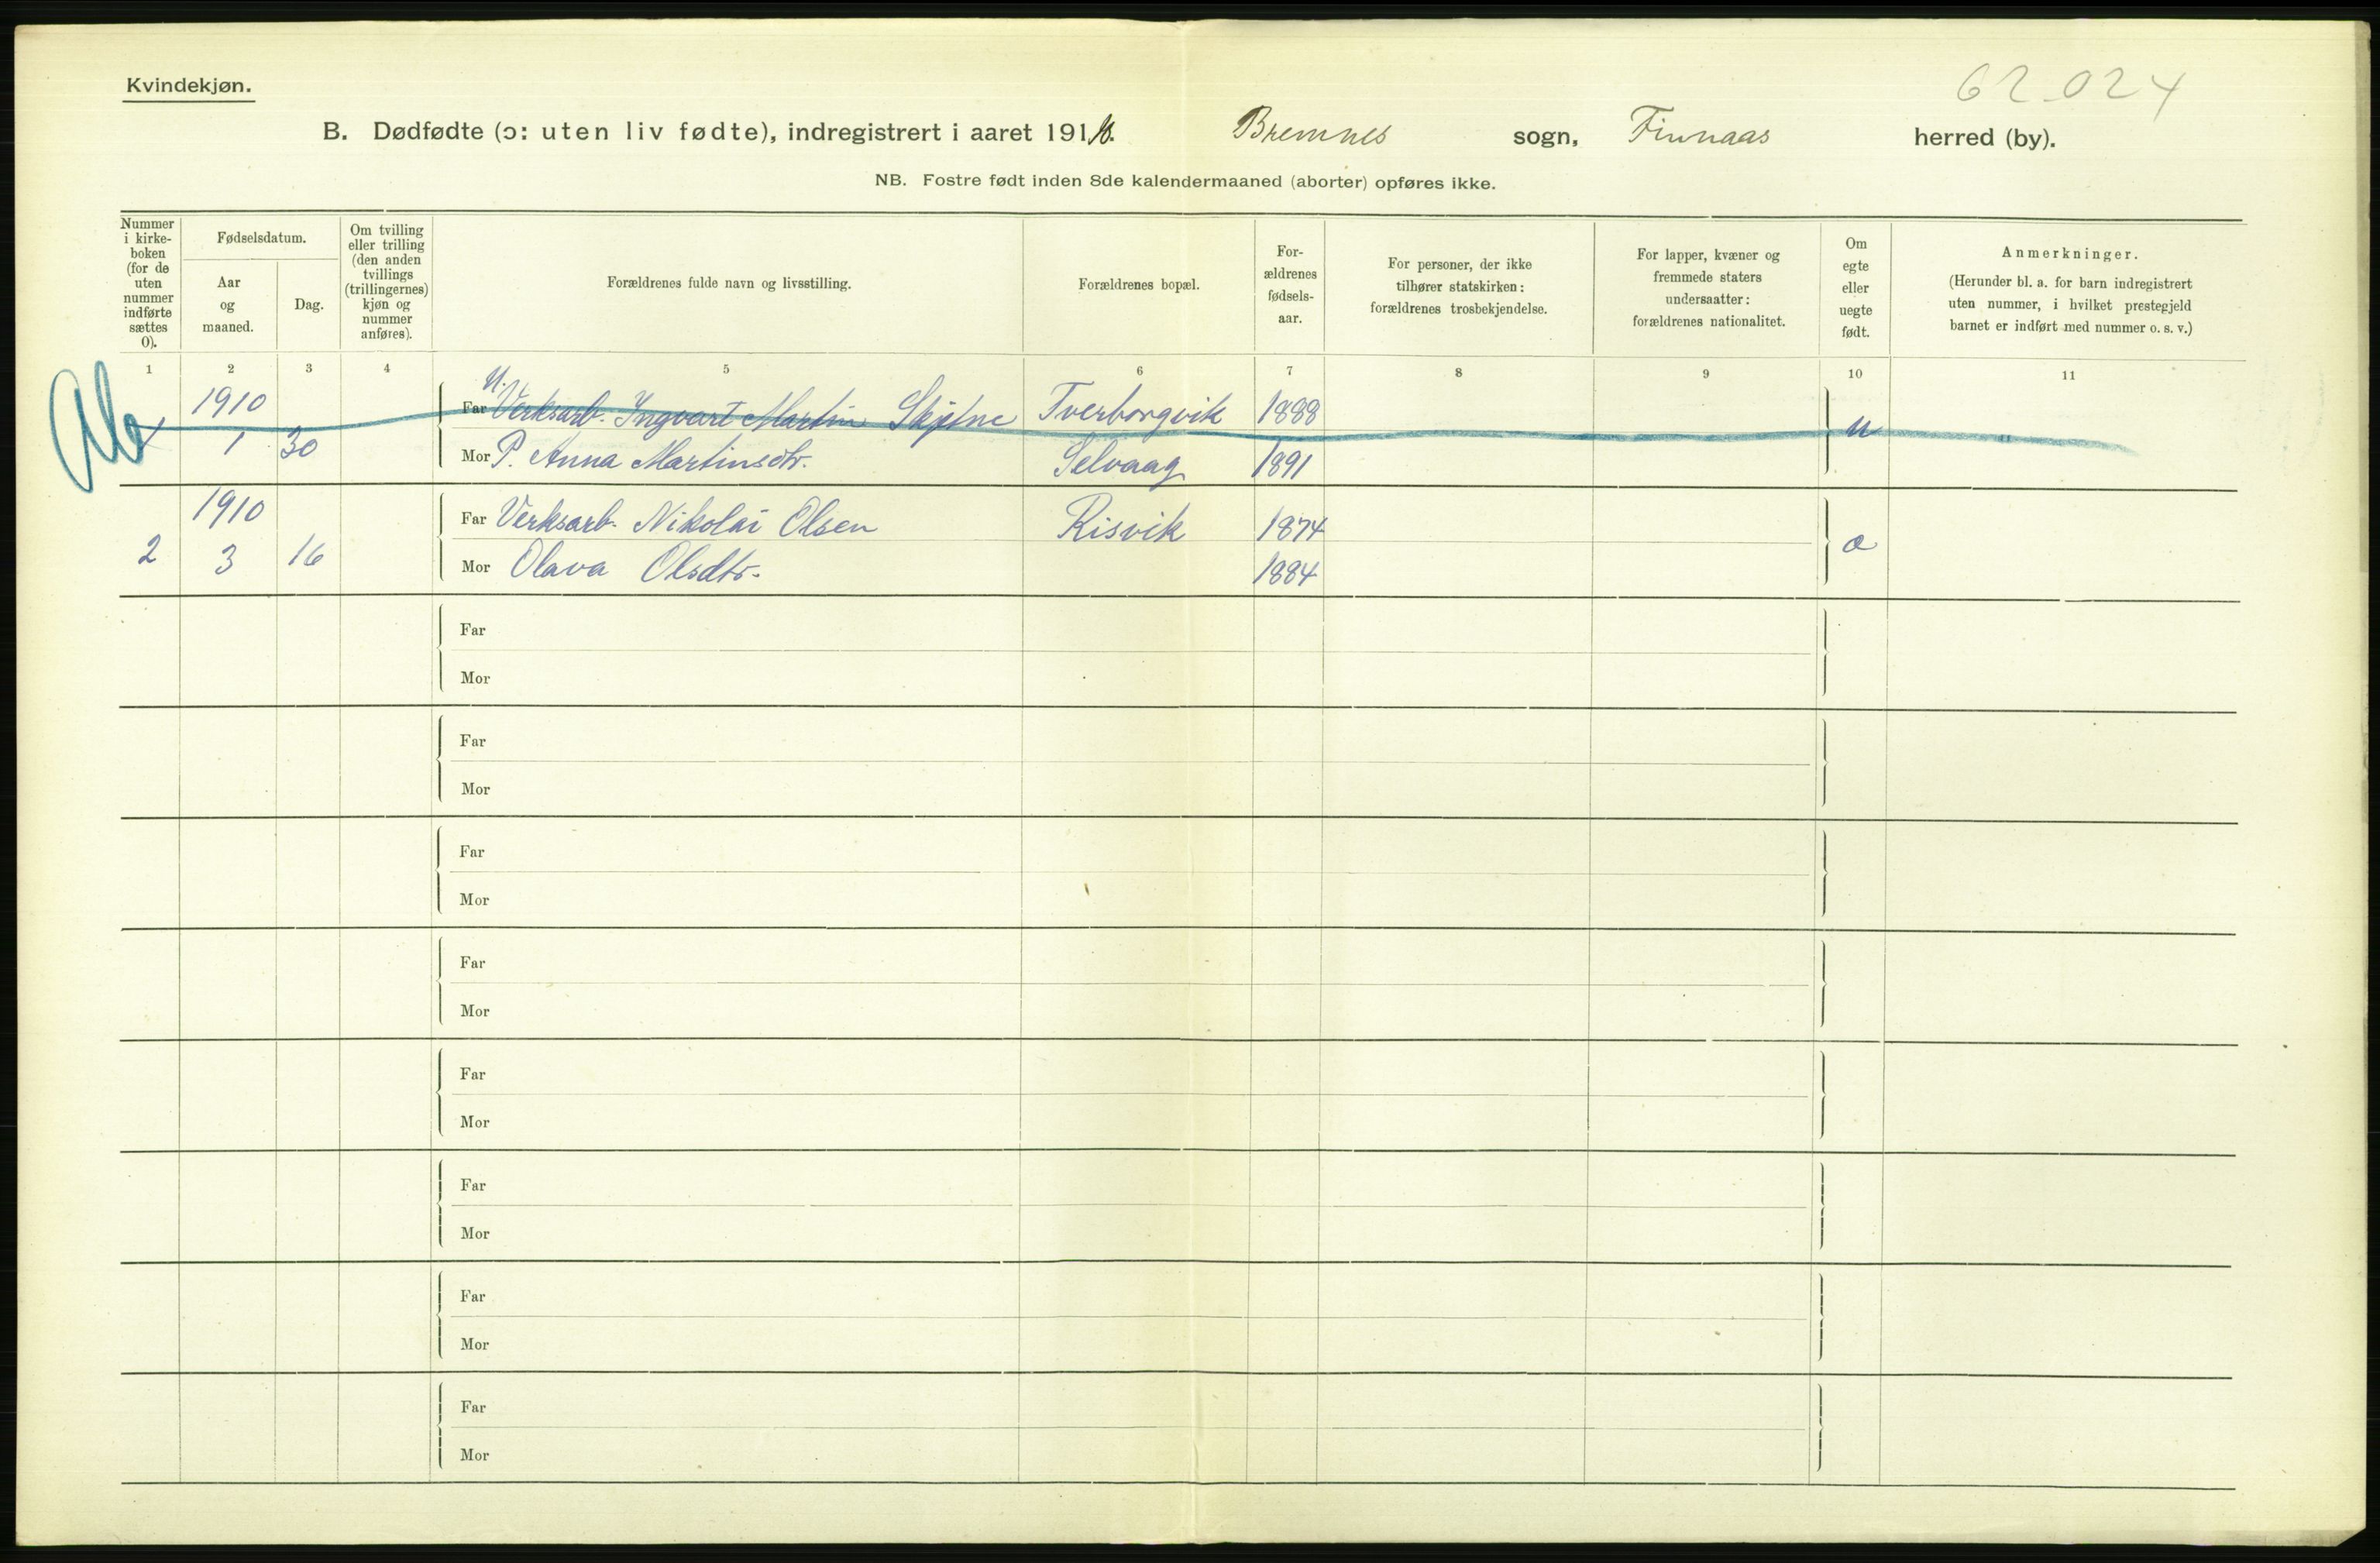 62.024
Kvindekjøn.
B. Dødfødte (ɔ: uten liv fødte), indregistrert i aaret 1910. Bremnes sogn, Finnaas herred (by).
NB. Fostre født inden 8de kalendermaaned (aborter) opføres ikke.
Nummer i kirke-boken (for de uten nummer indførte sættes 0).
Fødselsdatum.
Aar og maaned.
Dag.
Om tvilling eller trilling (den anden tvillings (trillingernes) kjøn og nummer anføres).
Forældrenes fulde navn og livsstilling.
Forældrenes bopæl.
For-ældrenes fødsels-aar.
For personer, der ikke tilhører statskirken: forældrenes trosbekjendelse.
For lapper, kvæner og fremmede staters undersaatter: forældrenes nationalitet.
Om egte eller uegte født.
Anmerkninger.
(Herunder bl. a. for barn indregistrert uten nummer, i hvilket prestegjeld barnet er indført med nummer o. s. v.)
1 2 3 4 5 6 7 8 9 10 11
1910 Far U. Verksarb. Ingvart Martin Tverborgvik 1888
1 1 30 Mor P. Anna Martinsdtr. Selvaag 1891 u
1910 Far Verksarb. Nikolai Olsen Risvik 1874
2 3 16 Mor Olava Olsdtr. 1884 æ
Far
Mor
Far
Mor
Far
Mor
Far
Mor
Far
Mor
Far
Mor
Far
Mor
Far
Mor